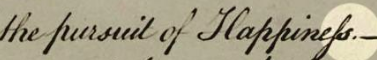 the pursuit of Happineſs.—